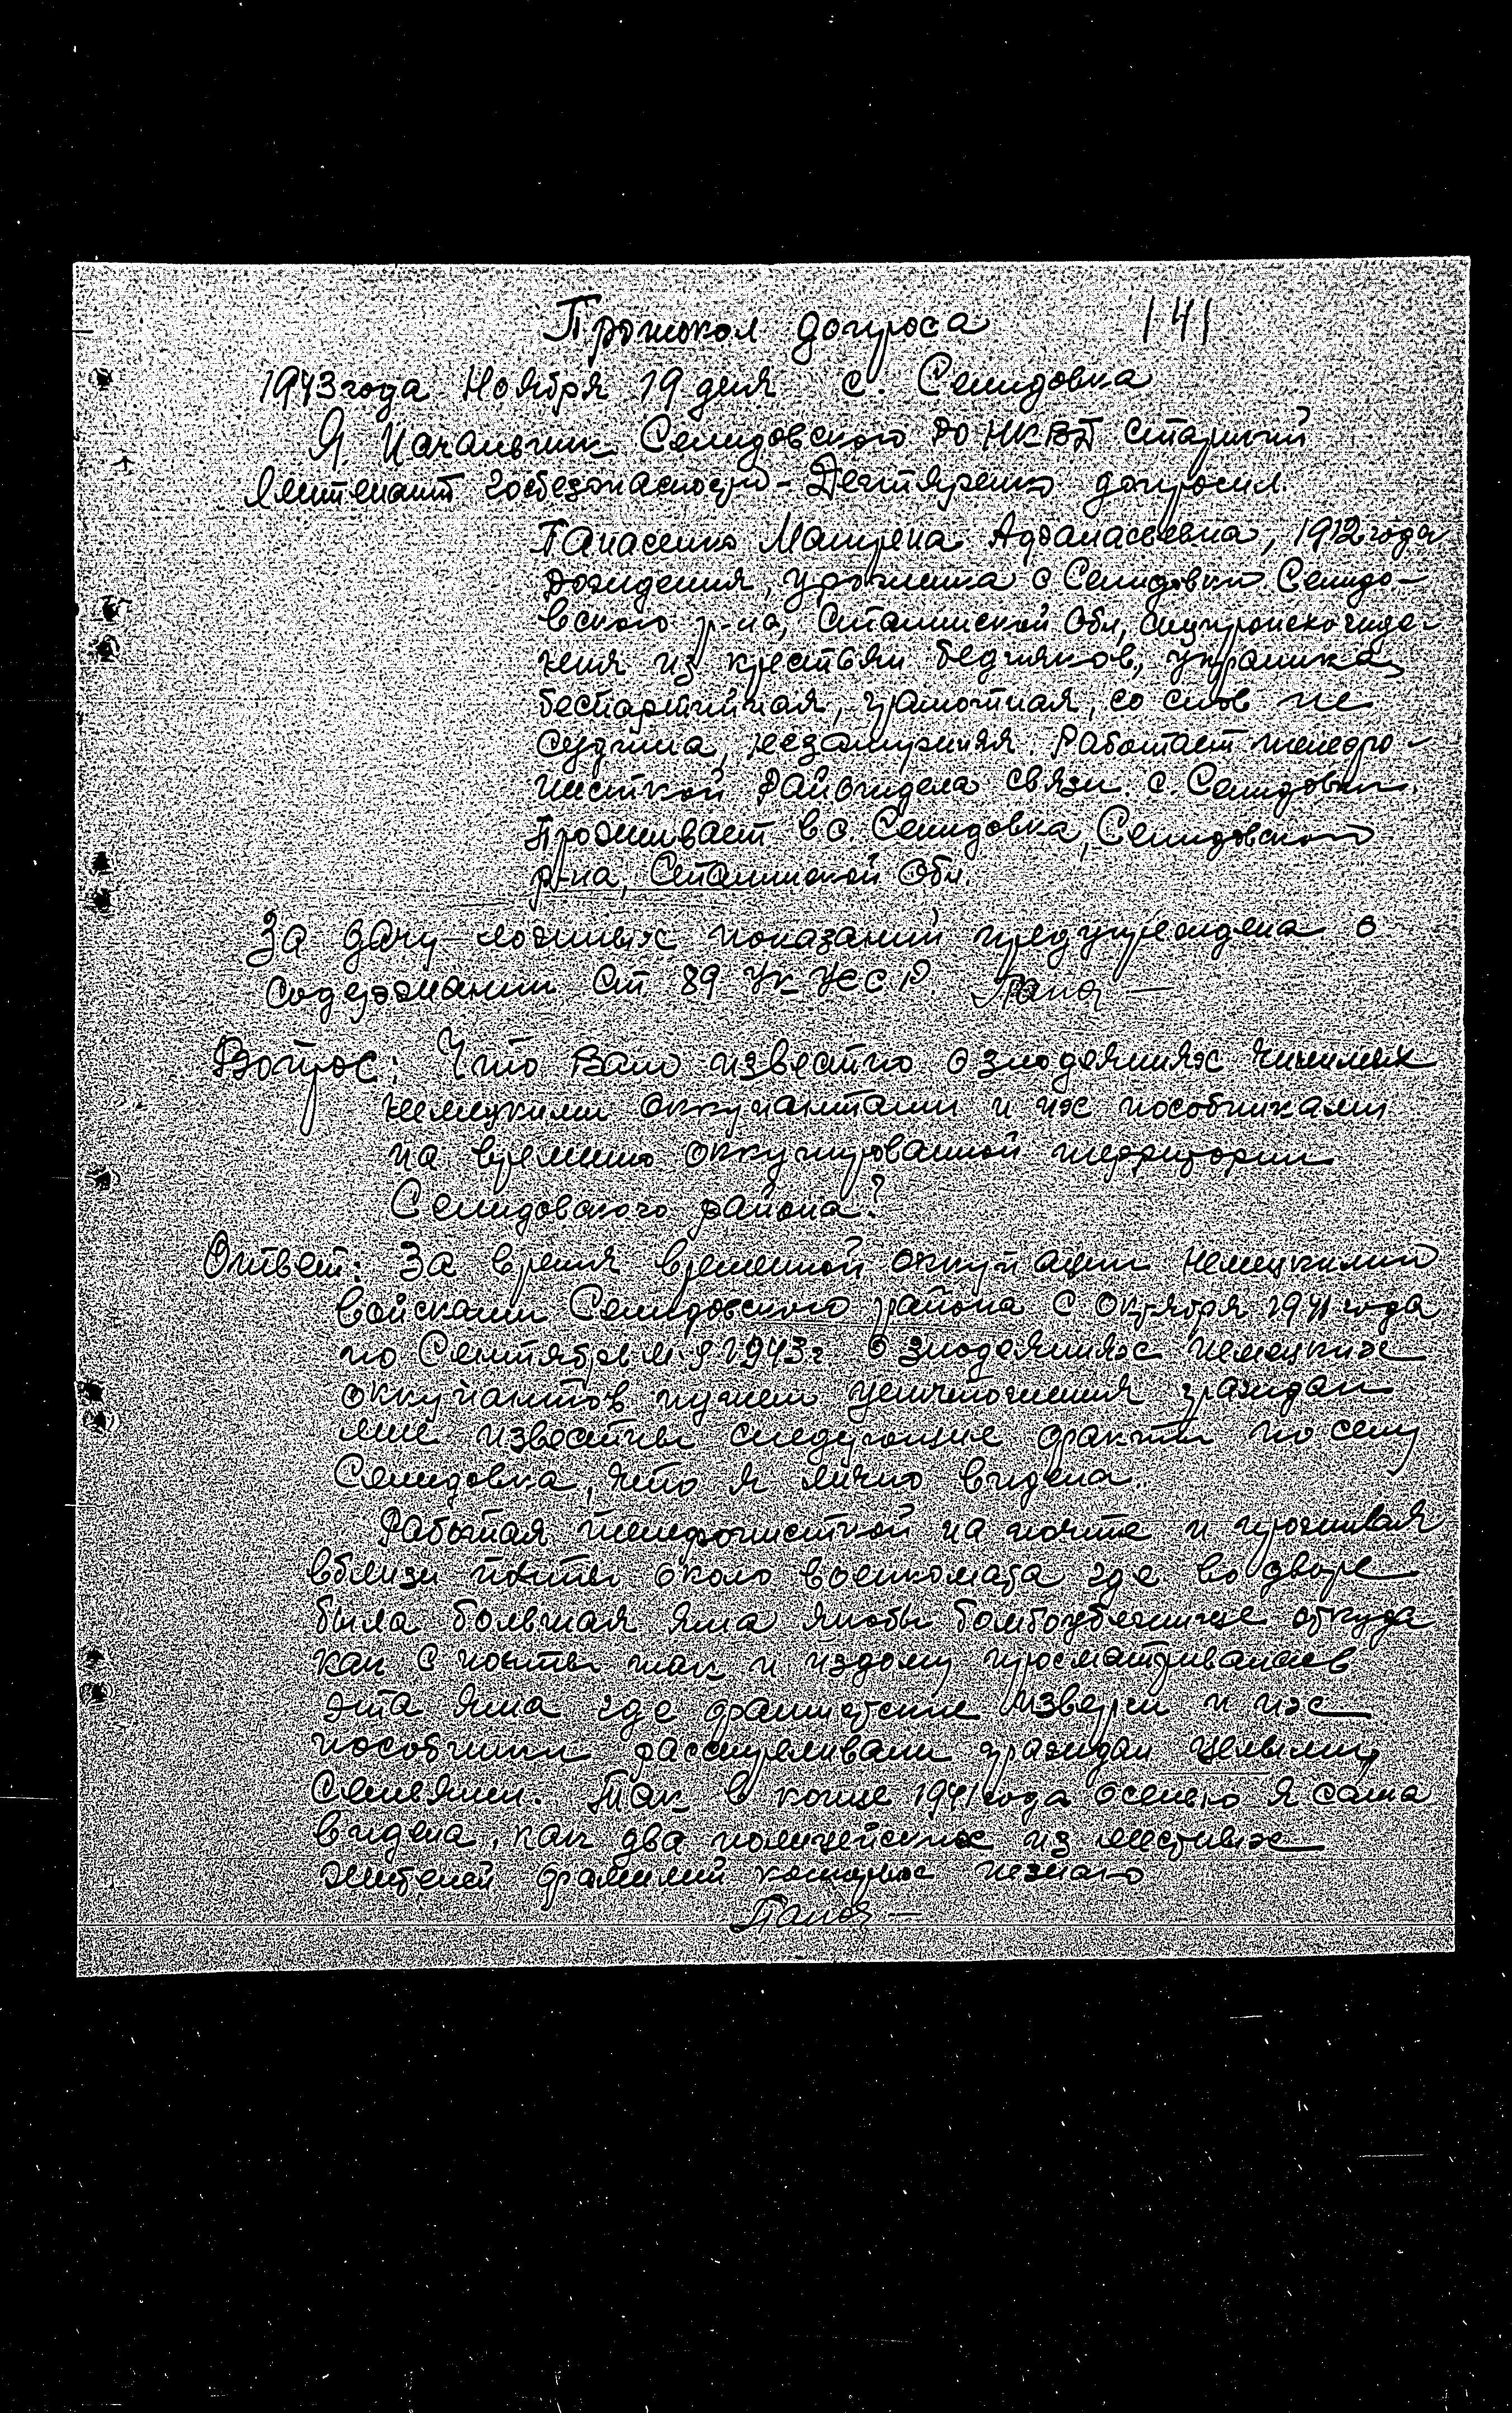 Протокол допроса 141
1943 года Ноября 19 дня с. Селидовка
Я Начальник Селидовского РО НКВД старший
лейтенант госбезопасности - Дегтяренко допросил
Панасенко Матрена Афанасьевна, 1912 года
рождения, урожинка с Селидовки Селидо-
вского р-на, Сталинской Обл, 
из крестьян бедняков, украинка,
беспартийная, грамотная, со слов не
судима, незамужняя. Работает телефо-
нисткой Райотдела связи с. Селидовки.
Проживает в с. Селидовка, Селидовского
р-на, Сталинской Обл
За дачу ложных показаний предупреждена о
содержании Ст 89 УК УССР. Панас
Вопрос: Что Вам известно о злодеяниях чинимых
немецкими оккупантами и их пособниками
на временно оккупированной территории
Селидовского района?
Ответ: За время временной оккупации немецкими
войсками Селидовского района с Октября 1941 года
по Сентябрь м-ц 1943г о злодеяниях немецких
оккупантов путем уничтожения граждан
мне известны следующие факты по селу
Селидовка, что я лично видела.
Работая телефонисткой на почте и проживая
вблизи почты около военкомата где во дворе
была большая яма якобы бомбоубежище откуда
как с почты так и издому просматривалась
эта яма где фашистские изверги и их
пособники расстреливали граждан целыми
семьями. Так в конце 1941 года осенью я сама
видела, как два полицейских из местных
жителей фамилий которых незнаю
Панас